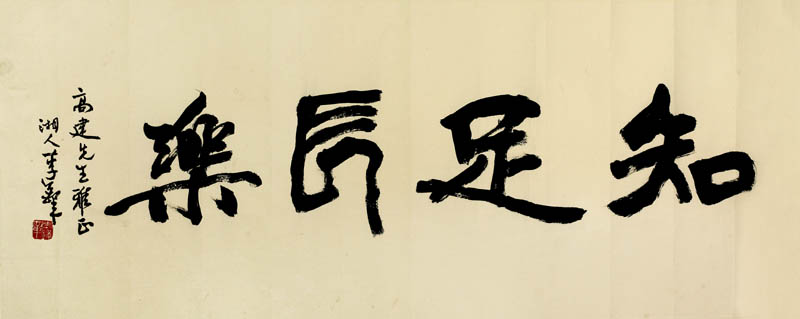 知足長樂
高建先生雅正
湘人李